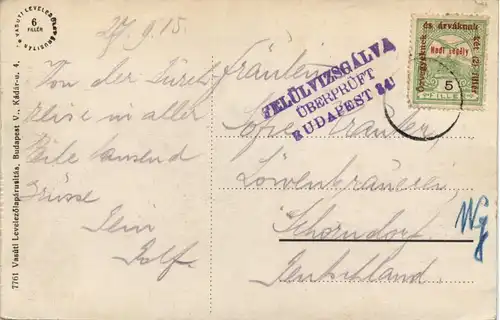 27.9.15.
Von der Durch-
reise in aller
Eile tausend
Grüsse
Dein
Rolf
Fräulein
Sofie
Löwenbrauerei
Schorndorf
Deutschland.
FELÜLVIZSGÁLVA
ÜBERPRÜFT
BUDAPEST
özvegyeknek és árváknak két (2) fillér
Hadi segély
5
VASUTI LEVELEZŐLAPÁRUSITÁS
6
FILLÉR
7761 Vasúti Levelezőlapárusitás, Budapest V., Kádár-u. 4.